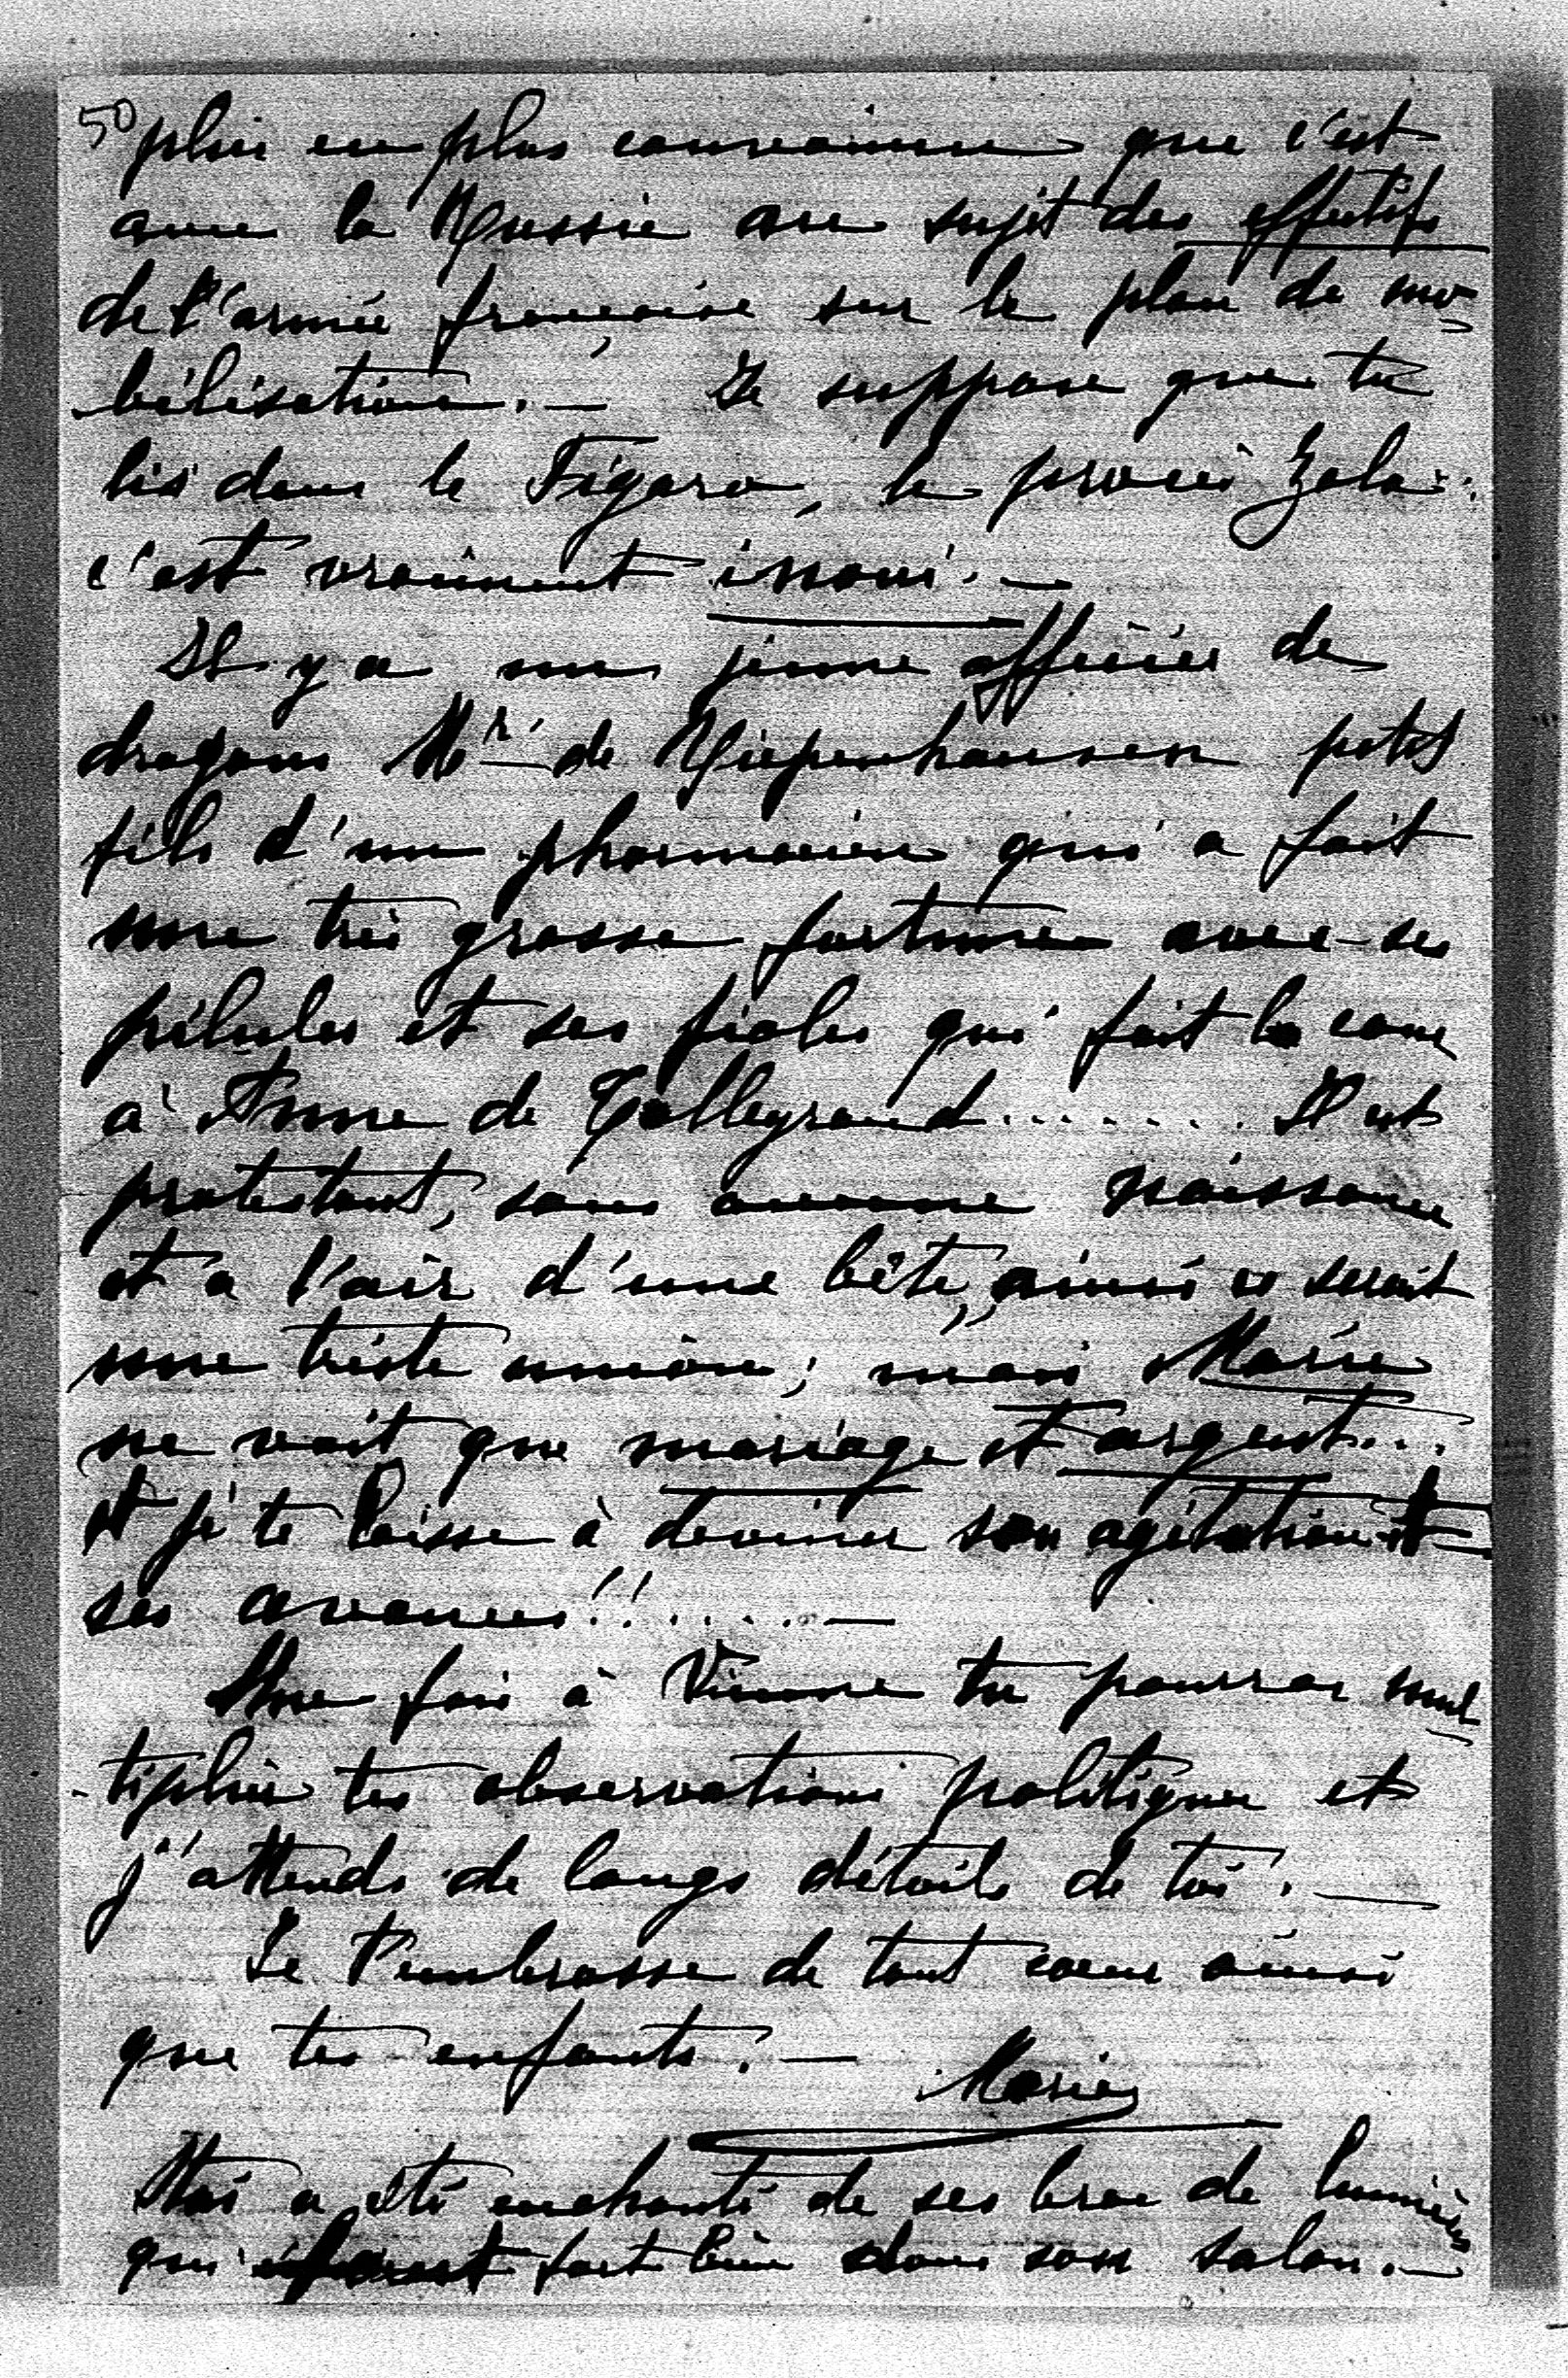 50 plus en plus convaincue que c'est
avec la Russie au sujet des effectifs
de l'armée française sur le plan de mo-
bilisation. — Je suppose que tu
lis dans le Figaro, le procès Zola:
c'est vraiment inouï. —
Il y a un jeune officier de
dragons Mr de Riepenhausen petit
fils d'un pharmacien qui a fait
une très grosse fortune avec ses
pilules et ses fioles qui fait la cour
à Anne de Talleyrand....... Il est
protestant, sans aucune naissance
et a l'air d'une bête, ainsi ce serait
une triste union; mais Marie
ne voit que mariage et argent...
et je te laisse à deviner son agitation et
ses avances!!..... —
Une fois à Vienne tu pourras mul
-tiplier tes observations politiques et
j'attends de longs détails de toi. —
Je t'embrasse de tout coeur ainsi
que tes enfants. — Marie
a été enchanté de ses bras de lumières
qui font bien dans son salon. —